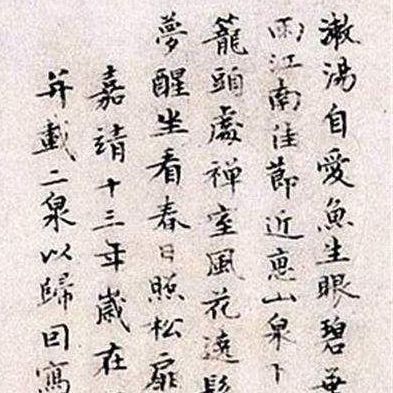 漱湯自愛魚生眼碧
雨江南佳節近惠山泉下
籠頭處禪室風花遶
夢醒坐看春日照松扉
嘉靖十三年歲在
并載二泉以歸回寫